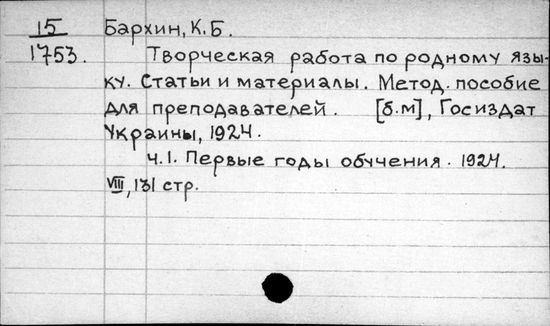 15 Бархин, К. Б.
1753. Творческая работа по родному язы-
ку. Статьи и материалы. Метод. пособие
для преподавателей. [б.м], Госиздат
Украины, 1924.
ч.1. Первые годы обучения. 1924.
VIII, 131 стр.